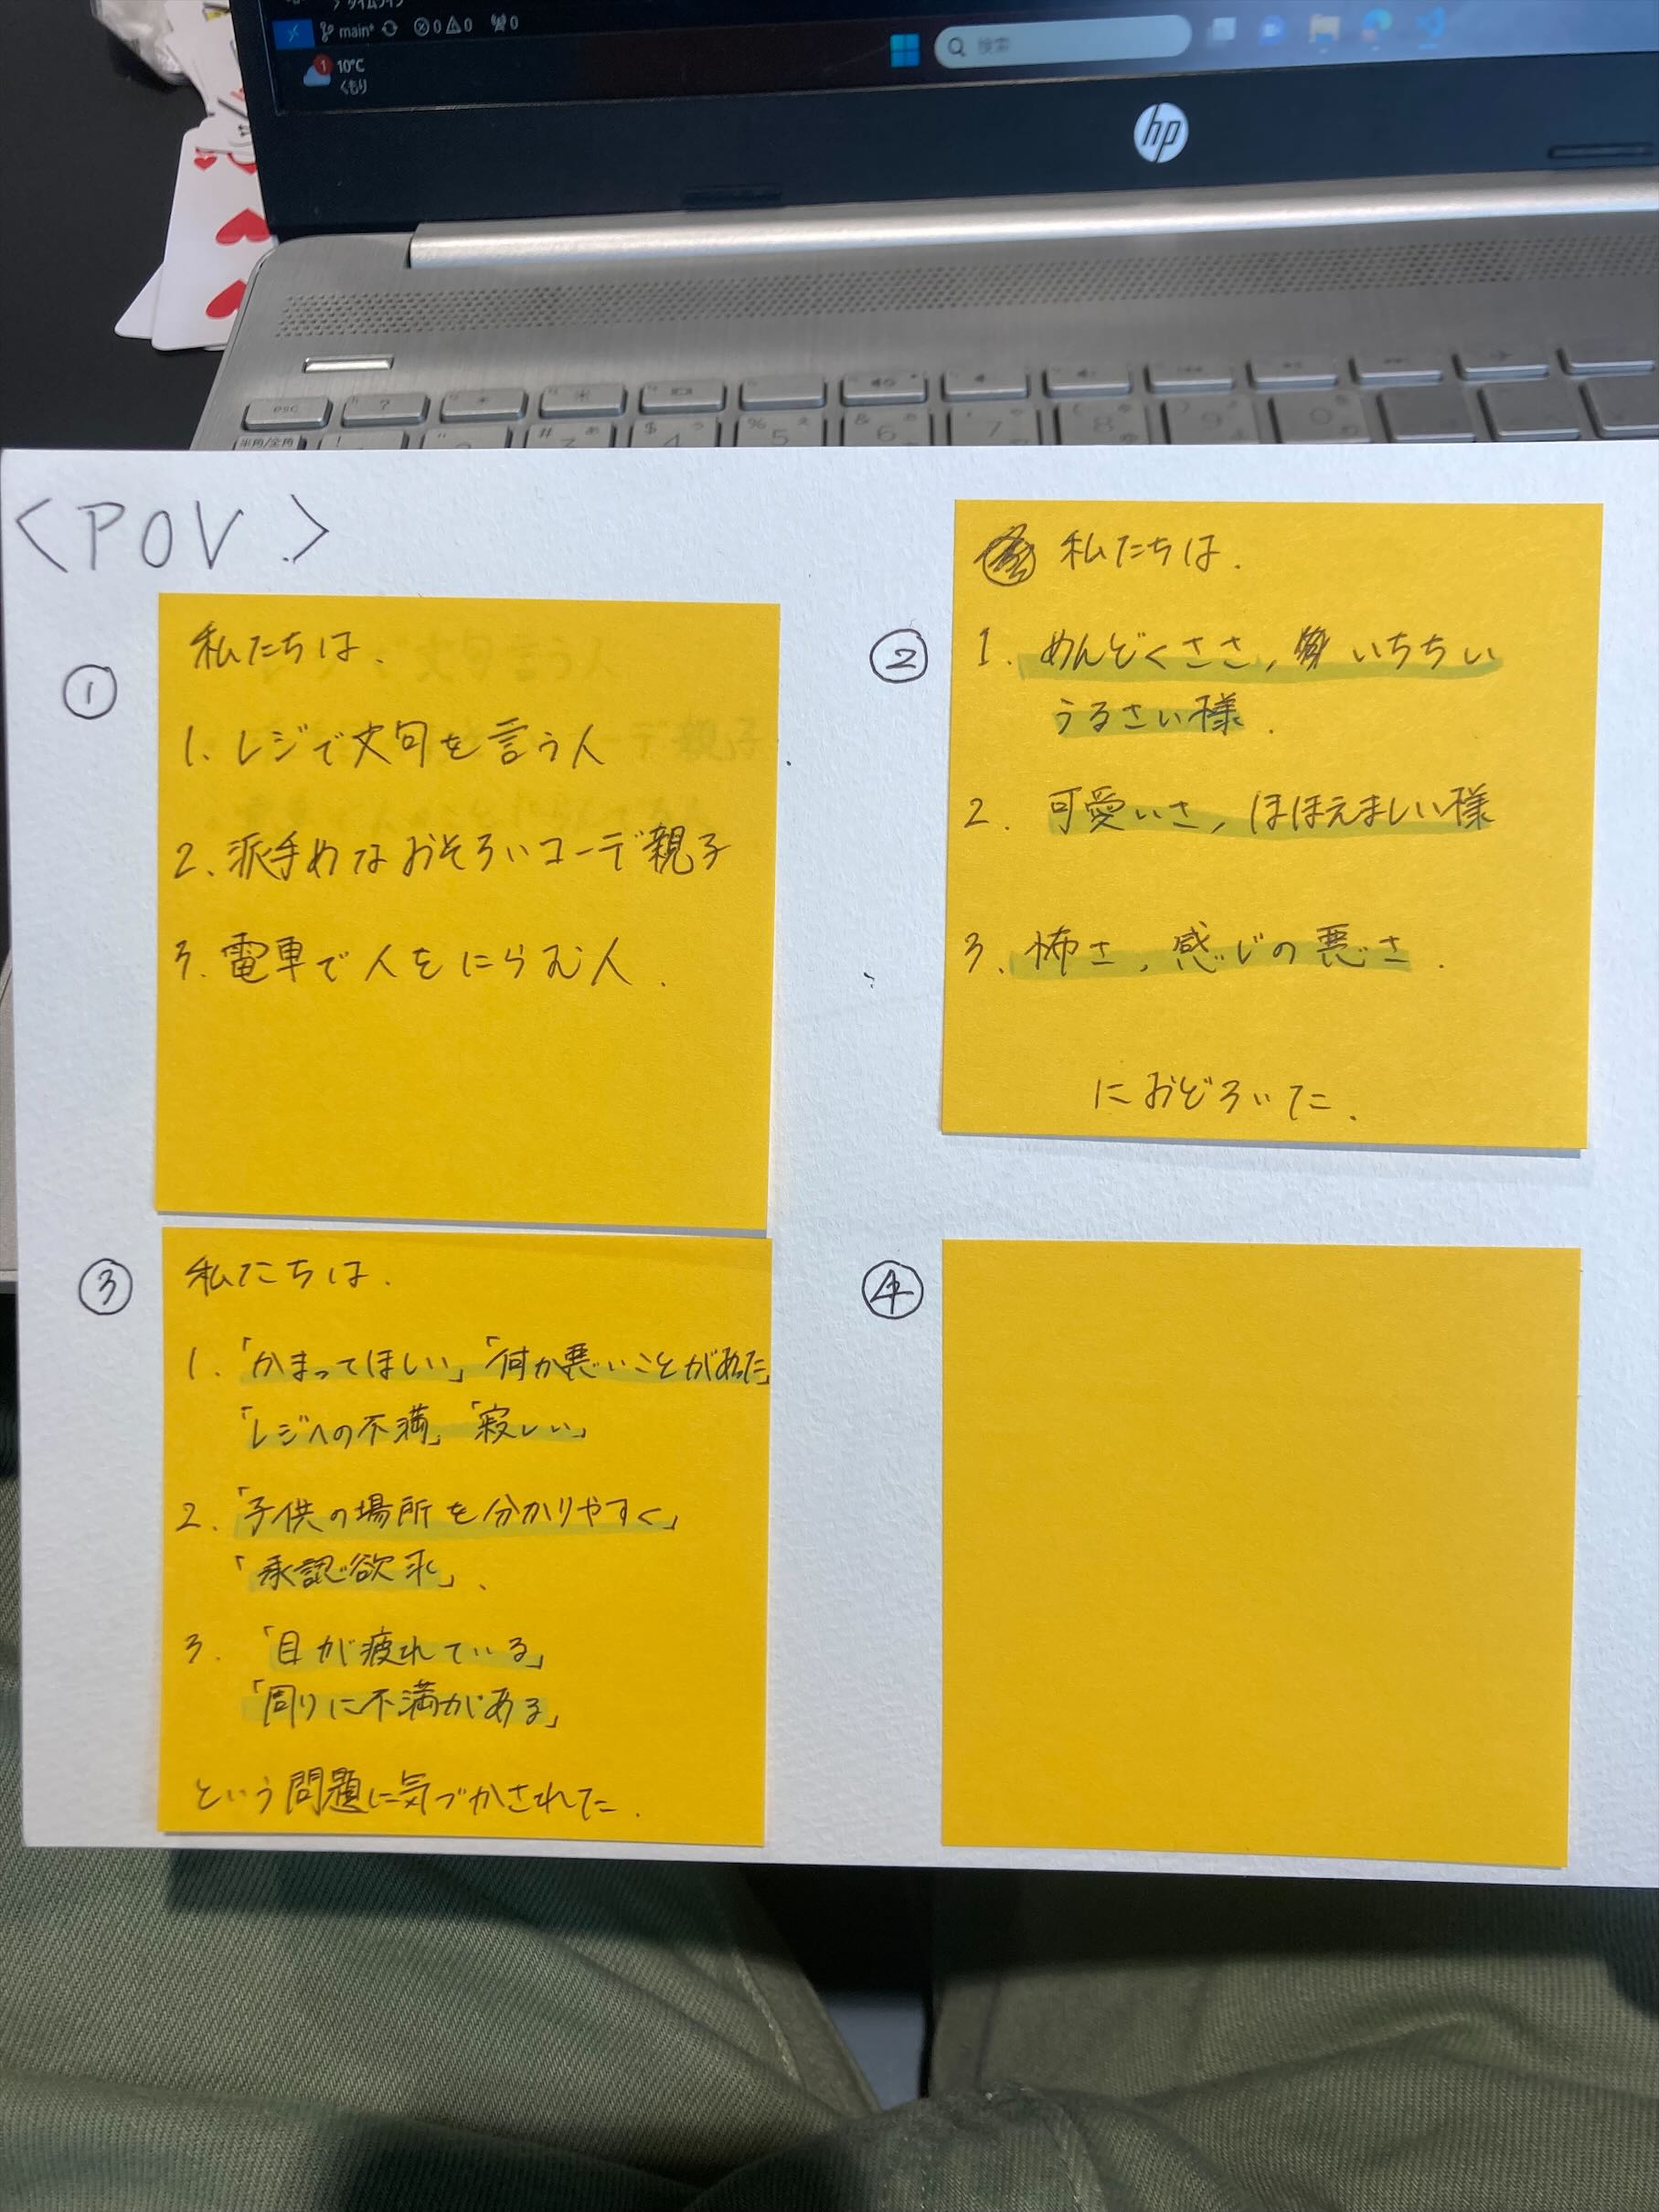 main*
0 0
0
10°C
くもり
1
検索
hp
esc
半角/全角
<POV.>
①
私たちは、
1. レジで文句を言う人
2. 派手めなおそろいコーデ親子
3. 電車で人をにらむ人.
②
私たちは.
1. めんどくささ, いちちい
うるさい様.
2. 可愛いさ, ほほえましい様
3. 怖さ, 感じの悪さ.
におどろいた.
③
私たちは.
1. 「かまってほしい」「何か悪いことがあった」
「レジへの不満」「寂しい」
2. 「子供の場所を分かりやすく」
「承認欲求」.
3. 「目が疲れている」
「周りに不満がある」
という問題に気づかされた.
④